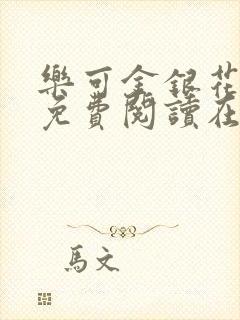 樂可金銀花
免費閱讀在
馬文